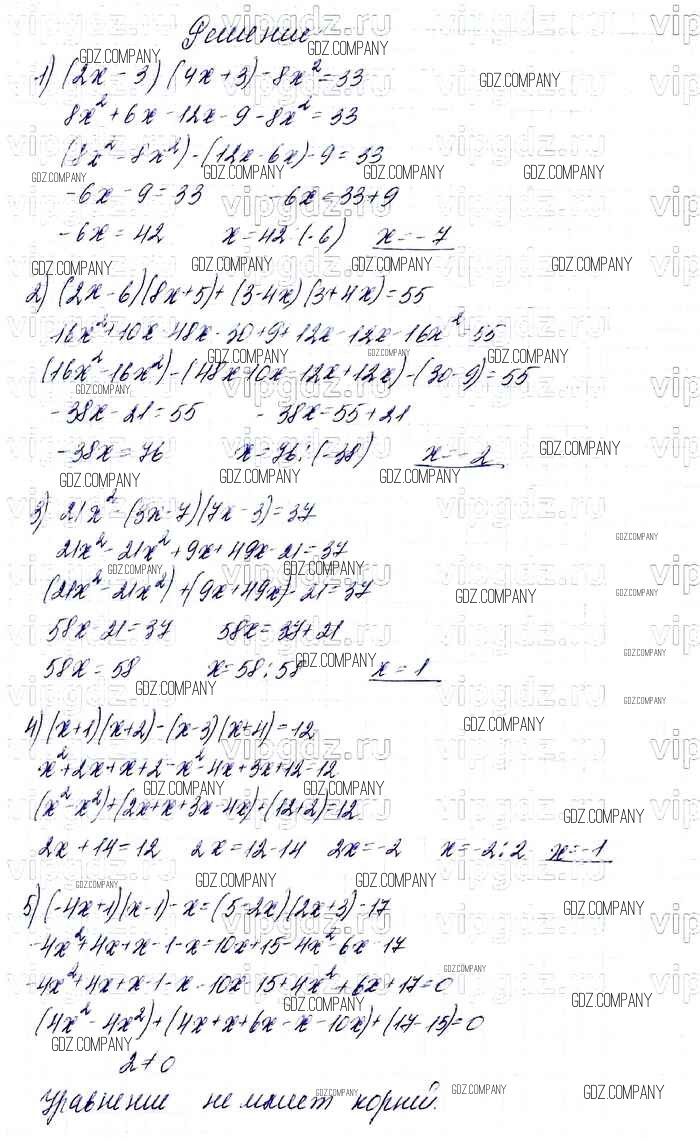 Решение
1) (2x - 3)(4x+3) - 8x² = 33
8x² + 6x - 12x - 9 - 8x² = 33
(8x² - 8x²) - (12x - 6x) - 9 = 33
-6x - 9 = 33   -6x = 33+9
-6x = 42   x = 42 (-6)   x = -7
2) (2x - 6)(8x+5) + (3-4x)(3+4x) = 55
16x² + 10x - 48x - 30 + 9 + 12x - 12x - 16x² = 55
(16x² - 16x²) - (48x - 10x - 12x + 12x) - (30 - 9) = 55
-38x - 21 = 55   -38x = 55 + 21
-38x = 76   x = 76 : (-38)   x = -2
3) 21x² - (3x - 7)(7x - 3) = 37
21x² - 21x² + 9x + 49x - 21 = 37
(21x² - 21x²) + (9x + 49x) - 21 = 37
58x - 21 = 37   58x = 37 + 21
58x = 58   x = 58 : 58   x = 1
4) (x+1)(x+2) - (x-3)(x+4) = 12
x² + 2x + x + 2 - x² - 4x + 3x + 12 = 12
(x² - x²) + (2x + x + 3x - 4x) + (12+2) = 12
2x + 14 = 12   2x = 12 - 14   2x = -2   x = -2 : 2   x = -1
5) (-4x+1)(x-1) - x = (5-2x)(2x+3) - 17
-4x² + 4x + x - 1 - x = 10x + 15 - 4x² - 6x - 17
-4x² + 4x + x - 1 - x - 10x - 15 + 4x² + 6x + 17 = 0
(4x² - 4x²) + (4x + x + 6x - x - 10x) + (17 - 15) = 0
2 ≠ 0
Уравнение не имеет корней.